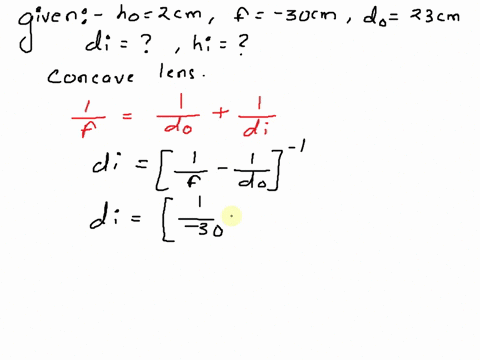 given:- ho = 2cm, f = -30cm, do = 23cm
di = ? , hi = ?
Concave lens.
1/f = 1/do + 1/di
di = [1/f - 1/do]^-1
di = [1/-30